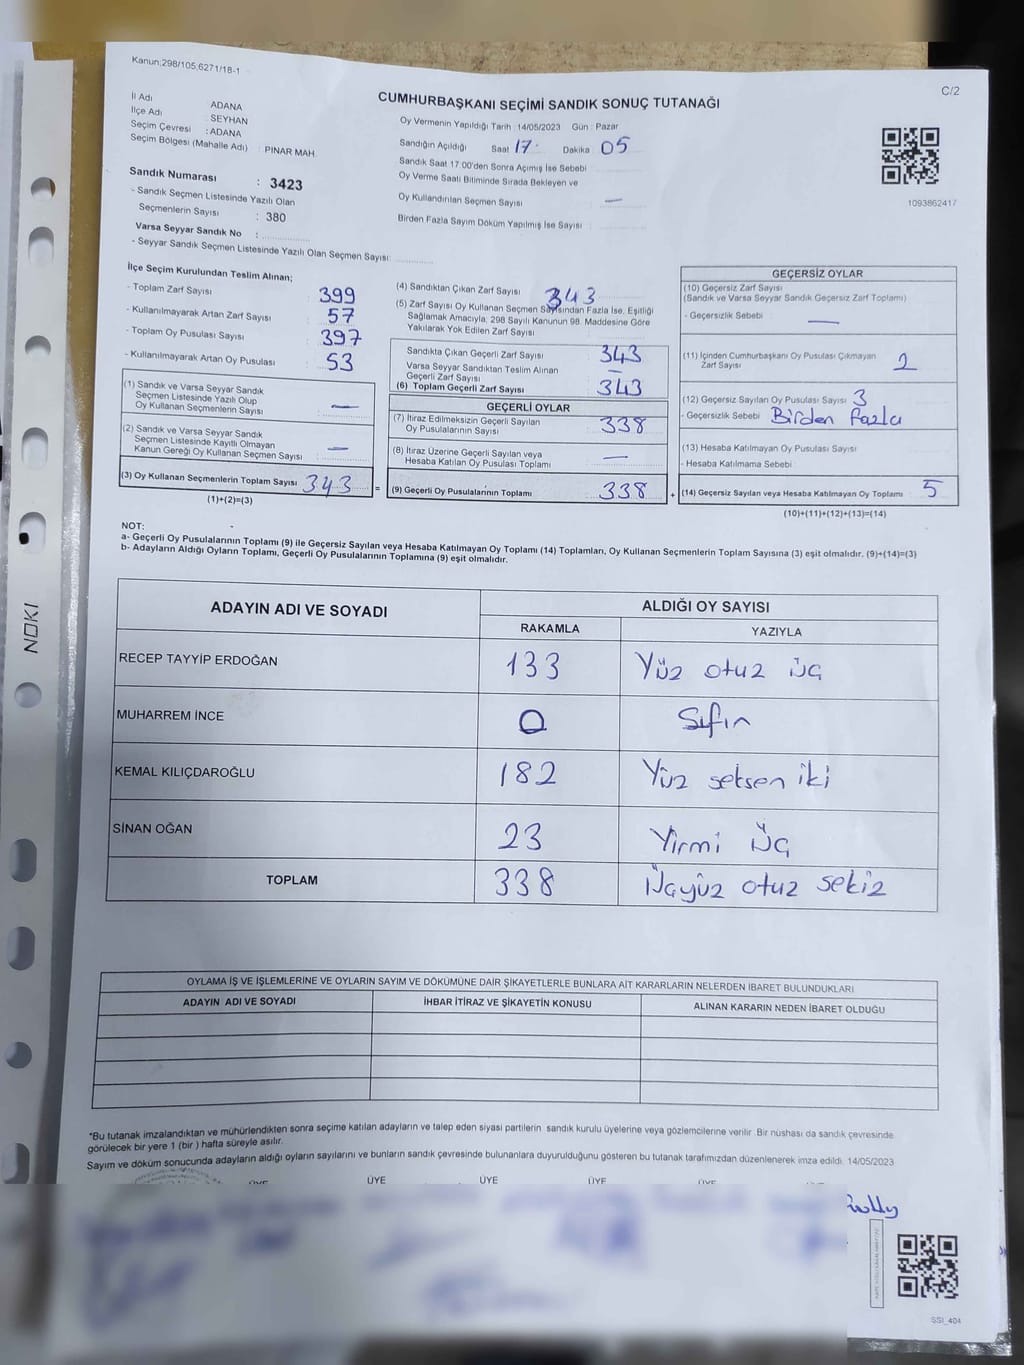 Kanun;298/105;6271/18-1
C/2
CUMHURBAŞKANI SEÇİMİ SANDIK SONUÇ TUTANAĞI
İl Adı ADANA
İlçe Adı SEYHAN
Seçim Çevresi : ADANA
Seçim Bölgesi (Mahalle Adı) : PINAR MAH.
Sandık Numarası : 3423
- Sandık Seçmen Listesinde Yazılı Olan
Seçmenlerin Sayısı : 380
Varsa Seyyar Sandık No :
- Seyyar Sandık Seçmen Listesinde Yazılı Olan Seçmen Sayısı:
Oy Vermenin Yapıldığı Tarih : 14/05/2023 Gün : Pazar
Sandığın Açıldığı Saat 17 Dakika 05
Sandık Saat 17 00'den Sonra Açımış İse Sebebi
Oy Verme Saati Bitiminde Sırada Bekleyen ve
Oy Kullandırılan Seçmen Sayısı —
Birden Fazla Sayım Döküm Yapılmış İse Sayısı :
1093862417
İlçe Seçim Kurulundan Teslim Alınan;
- Toplam Zarf Sayısı : 399
- Kullanılmayarak Artan Zarf Sayısı : 57
- Toplam Oy Pusulası Sayısı : 397
- Kullanılmayarak Artan Oy Pusulası : 53
(1) Sandık ve Varsa Seyyar Sandık
Seçmen Listesinde Yazılı Olup
Oy Kullanan Seçmenlerin Sayısı —
(2) Sandık ve Varsa Seyyar Sandık
Seçmen Listesinde Kayıtlı Olmayan
Kanun Gereği Oy Kullanan Seçmen Sayısı —
(3) Oy Kullanan Seçmenlerin Toplam Sayısı 343
(1)+(2)=(3)
(4) Sandıktan Çıkan Zarf Sayısı 343
(5) Zarf Sayısı Oy Kullanan Seçmen Sayısından Fazla İse, Eşitliği
Sağlamak Amacıyla, 298 Sayılı Kanunun 98. Maddesine Göre
Yakılarak Yok Edilen Zarf Sayısı
Sandıkta Çıkan Geçerli Zarf Sayısı 343
Varsa Seyyar Sandıktan Teslim Alınan
Geçerli Zarf Sayısı —
(6) Toplam Geçerli Zarf Sayısı 343
GEÇERLİ OYLAR
(7) İtiraz Edilmeksizin Geçerli Sayılan
Oy Pusulalarının Sayısı 338
(8) İtiraz Üzerine Geçerli Sayılan veya
Hesaba Katılan Oy Pusulası Toplamı —
= (9) Geçerli Oy Pusulalarının Toplamı 338
GEÇERSİZ OYLAR
(10) Geçersiz Zarf Sayısı
(Sandık ve Varsa Seyyar Sandık Geçersiz Zarf Toplamı)
- Geçersizlik Sebebi —
(11) İçinden Cumhurbaşkanı Oy Pusulası Çıkmayan
Zarf Sayısı 2
(12) Geçersiz Sayılan Oy Pusulası Sayısı 3
- Geçersizlik Sebebi Birden fazla
(13) Hesaba Katılmayan Oy Pusulası Sayısı
- Hesaba Katılmama Sebebi
+ (14) Geçersiz Sayılan veya Hesaba Katılmayan Oy Toplamı 5
(10)+(11)+(12)+(13)=(14)
NOT:
a- Geçerli Oy Pusulalarının Toplamı (9) ile Geçersiz Sayılan veya Hesaba Katılmayan Oy Toplamı (14) Toplamları, Oy Kullanan Seçmenlerin Toplam Sayısına (3) eşit olmalıdır. (9)+(14)=(3)
b- Adayların Aldığı Oyların Toplamı, Geçerli Oy Pusulalarının Toplamına (9) eşit olmalıdır.
ADAYIN ADI VE SOYADI ALDIĞI OY SAYISI
RAKAMLA YAZIYLA
RECEP TAYYİP ERDOĞAN 133 Yüz otuz üç
MUHARREM İNCE 0 Sıfır
KEMAL KILIÇDAROĞLU 182 Yüz seksen iki
SİNAN OĞAN 23 Yirmi Üç
TOPLAM 338 Üçyüz otuz sekiz
OYLAMA İŞ VE İŞLEMLERİNE VE OYLARIN SAYIM VE DÖKÜMÜNE DAİR ŞİKAYETLERLE BUNLARA AİT KARARLARIN NELERDEN İBARET BULUNDUKLARI
ADAYIN ADI VE SOYADI İHBAR İTİRAZ VE ŞİKAYETİN KONUSU ALINAN KARARIN NEDEN İBARET OLDUĞU
*Bu tutanak imzalandıktan ve mühürlendikten sonra seçime katılan adayların ve talep eden siyasi partilerin sandık kurulu üyelerine veya gözlemcilerine verilir. Bir nüshası da sandık çevresinde
görülecek bir yere 1 (bir ) hafta süreyle asılır.
Sayım ve döküm sonucunda adayların aldığı oyların sayılarını ve bunların sandık çevresinde bulunanlara duyurulduğunu gösteren bu tutanak tarafımızdan düzenlenerek imza edildi. 14/05/2023
ÜYE ÜYE ÜYE ÜYE ÜYE
SSI_404
NOKI